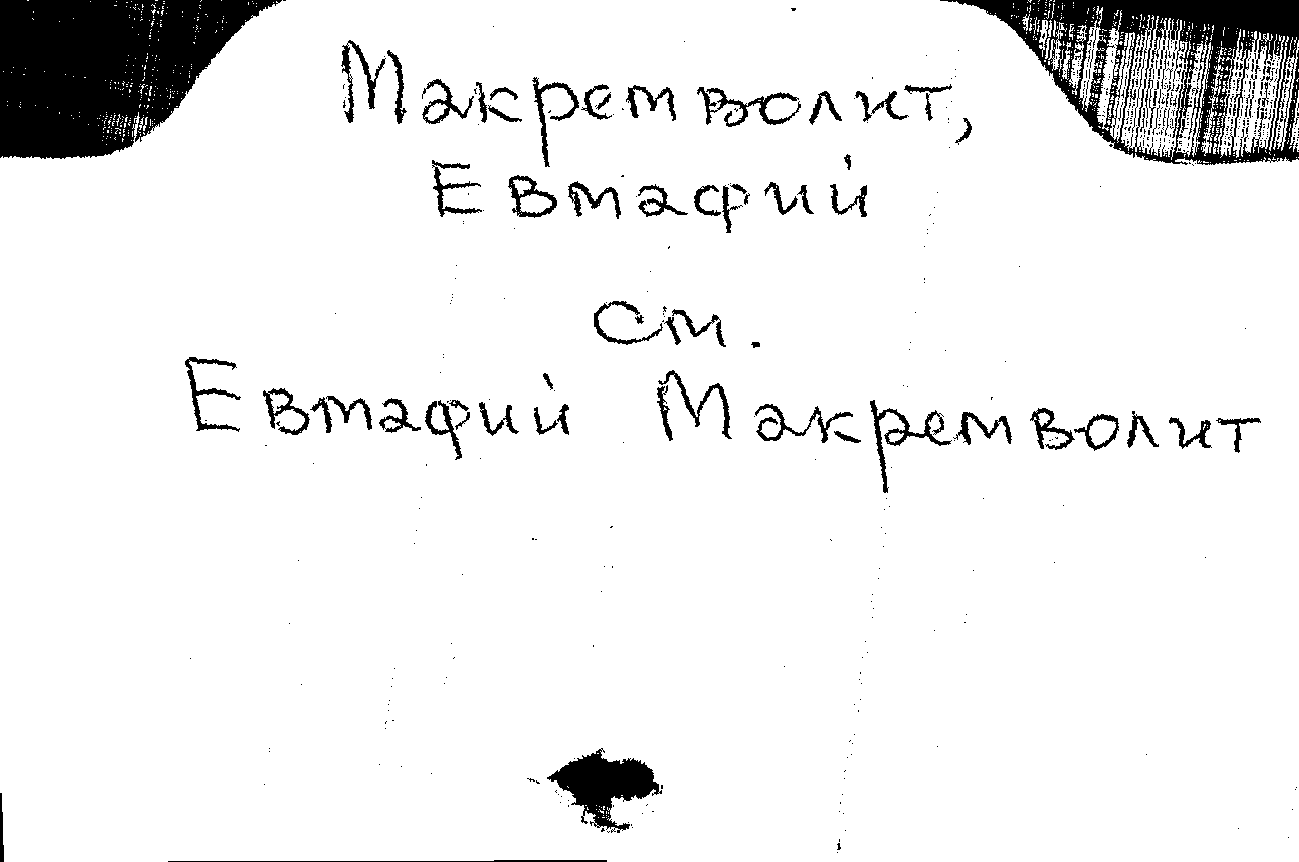 Макремволит,
Евматий
см.
Евматий Макремволит